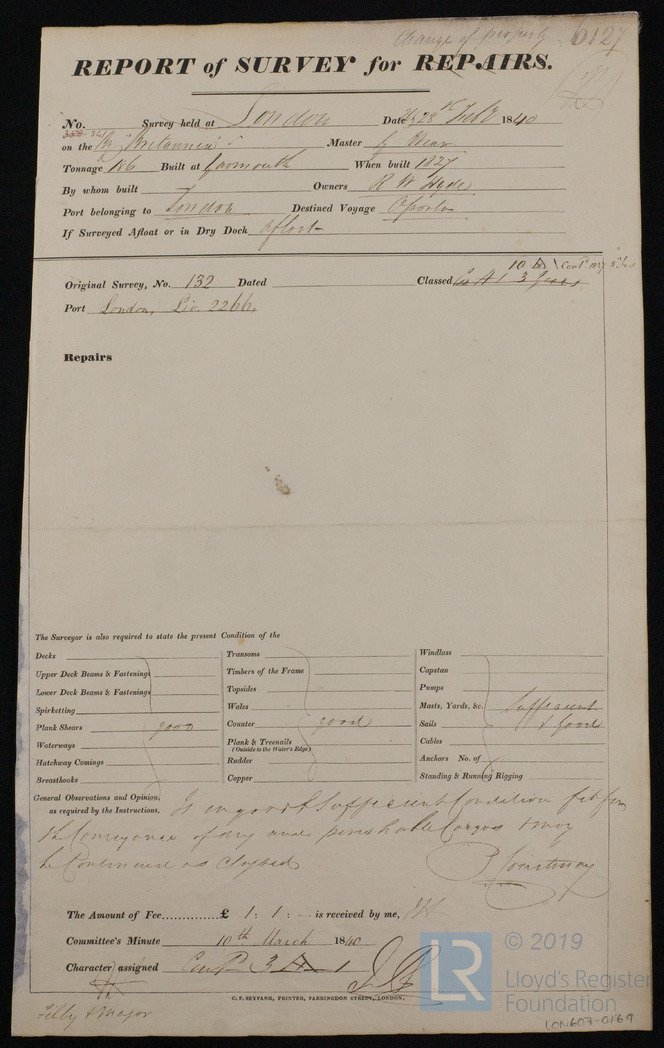 Change of property 6127
REPORT of SURVEY for REPAIRS.
No. Survey held at London Date 28 Feby 1840
on the Britannia Master J Wear
Tonnage 186 Built at Yarmouth When built 1827
By whom built Owners R W Hyde
Port belonging to London Destined Voyage Oporto
If Surveyed Afloat or in Dry Dock afloat
10 A 1 Contd
Original Survey, No. 132 Dated Classed A 1 3 Years
Port London, Liv. 2266,
Repairs
The Surveyor is also required to state the present Condition of the
Decks
Upper Deck Beams & Fastenings
Lower Deck Beams & Fastenings
Spirketting
Plank Shears good
Waterways
Hatchway Comings
Breasthooks
Transoms
Timbers of the Frame
Topsides
Wales
Counter good
Plank & Treenails
(Outside to the Water's Edge)
Rudder
Copper
Windlass
Capstan
Pumps
Masts, Yards, &c. Sufficient
Sails & Good
Cables
Anchors No. of
Standing & Running Rigging
General Observations and Opinion, Is in good & Sufficient Condition fit for
as required by the Instructions,
the Conveyance of dry and perishable Cargos & may
be Continued as Classed
P Courtenay
The Amount of Fee.............. £ 1: 1: is received by me,
Committee's Minute 10th March 1840
Character assigned Contd 3 A 1
C. F. SEYFANG, PRINTER, FARRINGDON STREET, LONDON.
Tilly & Major
LR © 2019
Lloyd's Register
Foundation
LON607-0169